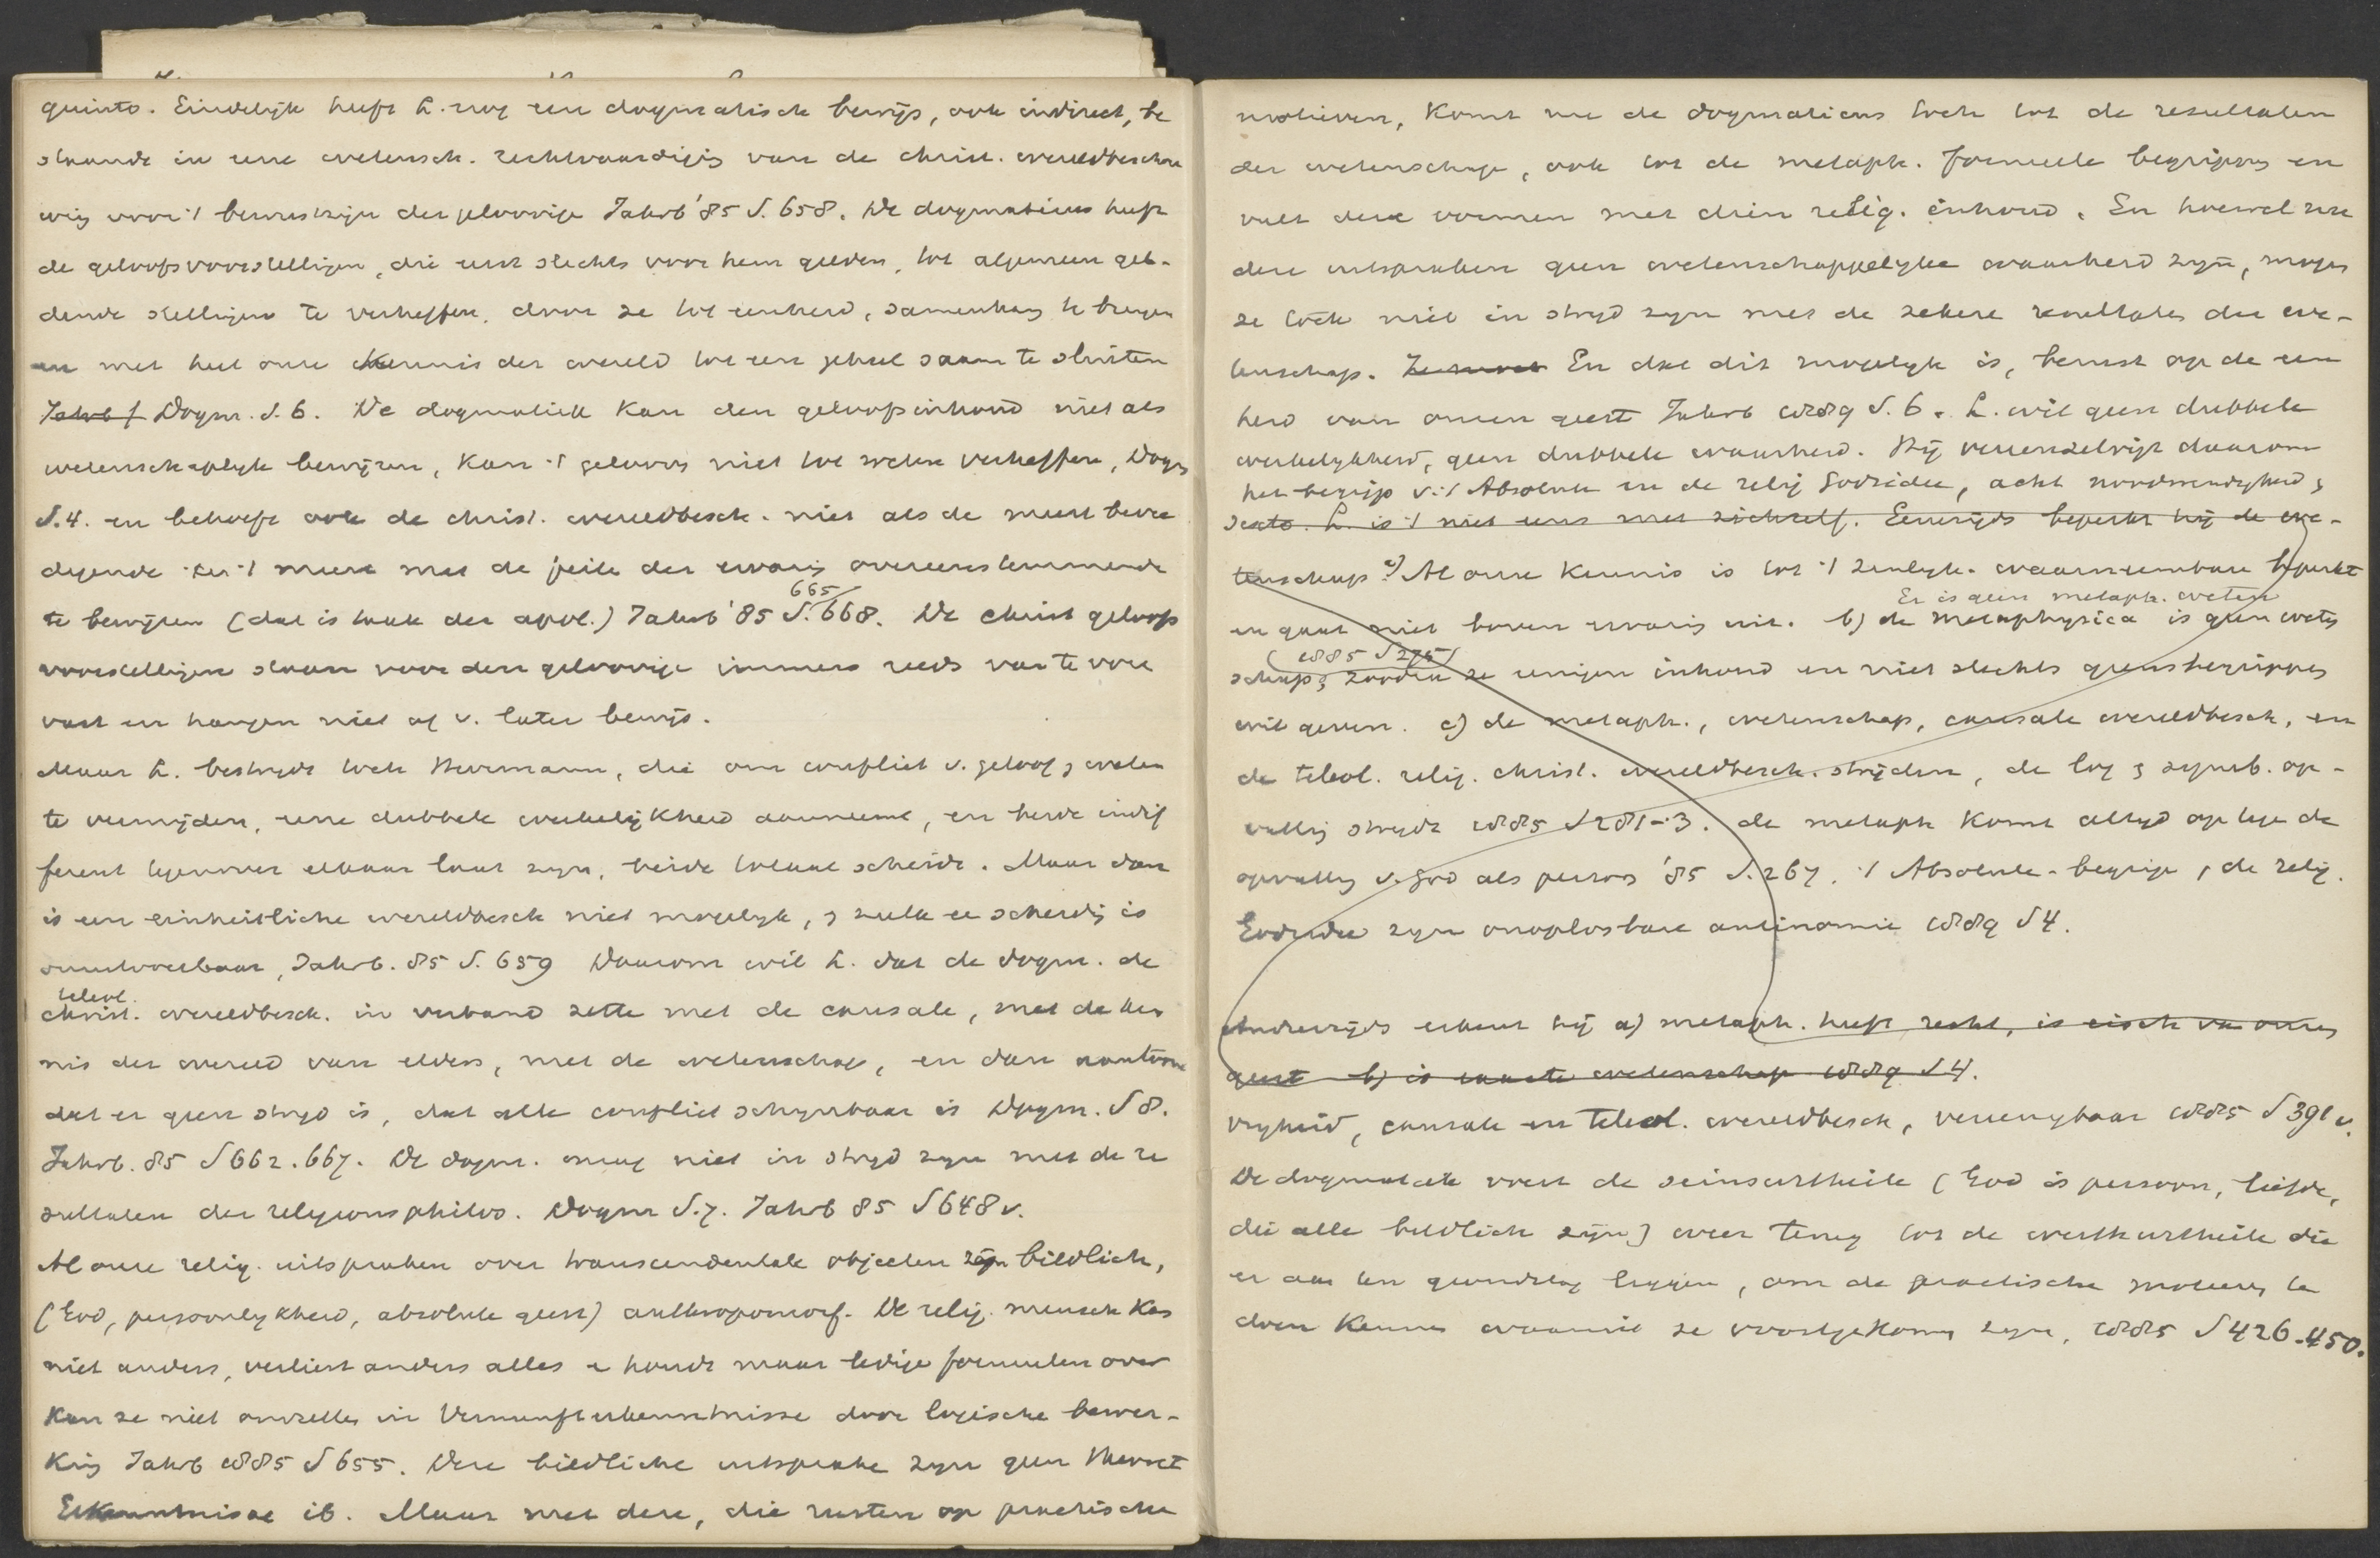 quinto. Eindelijk heeft L. nog een dogmatisch bewijs, ook indirect, be
staande in eene wetensch. rechtvaardigig van de christ. wereldbeschou
wing voor 't bewustzijn der geloovige Jahrb '85 S. 658. De dogmaticus heeft
de geloofsvoorstellingen, die eerst slechts voor hem gelden, tot algemeen gel-
dende stellingen te verheffen, door ze tot eenheid, samenhang te brengen
en met heel onze kennis der wereld tot een geheel saam te sluiten
Jahrb f Dogm. S. 6. De dogmatiek kan den geloofsinhoud niet als
wetenschaplijk bewijzen, kan 't gelooven niet tot weten verheffen, Dogm
S. 4. en behoeft ook de christ. wereldbesch. niet als de meest bevre
digende en 't meest met de feiten der ervaring overeenstemmende
665
te bewijzen (dat is taak der apol.) Jahrb '85 S. 668. De christ geloofs
voorstellingen staan voor den geloovige immers reeds van te voren
vast en hangen niet af v. later bewijs.
Maar L. bestrijdt toch Herrmann, die om conflict v. geloof & weten
te vermijden, eene dubbele werkelijkheid aanneemt, en beide indif
ferent tegenover elkaar laat zijn, beide totaal scheidt. Maar dan
is een einheitliche wereldbesch niet mogelijk, & zulk ee scheidig is
onuitvoerbaar, Jahrb. 85 S. 659 Daarom wil L. dat de dogm. de
teleol.
christ. wereldbesch. in verband zette met de causale, met de ken
nis der wereld van elders, met de wetenschap, en dan aantoone
dat er geen strijd is, dat alle conflict schijnbaar is Dogm. S 8.
Jahrb. 85 S 662. 667. De dogm. mag niet in strijd zijn met de re
sultaten der religionsphilos. Dogm S. 7. Jahrb 85 S 648 v.
Al onze relig. uitspraken over transcendentale objecten zijn bildlich,
(God, persoonlijkheid, absolute geest) anthropomorf. De relig. mensch kan
niet anders, verliest anders alles & houdt maar ledige formulen over
kan ze niet omzetten in Vernunfterkenntnisse door logische bewer-
king Jahrb 1885 S 655. Deze bildliche uitspraken zijn geen theoret
Erkenntnisse ib. Maar met deze, die rusten op practische
motieven, komt nu de dogmaticus toch tot de resultaten
der wetenschap, ook tot de metaph. formeele begrippen en
vult deze vormen met dien relig. inhoud. En hoewel nu
deze uitspraken geen wetenschappelijke waarheid zijn, mogen
ze toch niet in strijd zijn met de zekere resultaten der we-
tenschap. Ze moet En dat dit mogelijk is, berust op de een
heid van onzen geest Jahrb 1889 S. 6. L. wil geen dubbele
werkelijkheid, geen dubbele waarheid. Hij vereenzelvigt daarom
het begrip v. 't Absolute en de relig Godsidee, acht noodwendigheid &
sexto. L. is 't niet eens met zichzelf. Eenerzijds beperkt hij de we-
tenschap a) Al onze kennis is tot 't zinlijk- waarneembare beperkt
Er is geen metaph. weten
en gaat niet boven ervaring uit. b) de metaphysica is geen weten
(1885 S 275)
schap; zoodra ze eenigen inhoud en niet slechts grensbegrippen
wil geven. c) de metaph., wetenschap, causale wereldbesch, en
de teleol. relig. christ. wereldbesch. strijden, de log & symb. op-
vatting strijdt 1885 S 281-3. de metaph komt altijd op tegen de
opvatting v. God als persoon '85 S. 267. 't Absolute-begrip & de relig.
Godsidee zijn onoplosbare antinomie 1889 S 4.
Anderzijds erkent hij a) metaph. heeft recht, is eisch van onzen
geest b) is exacte wetenschap 1889 S 4.
vrijheid, causale en teleol. wereldbesch, vereenigbaar 1885 S 391 v.
De dogmatiek voert de seinsurtheile (God is persoon, liefde,
die alle bildlich zijn) weer terug tot de werthurtheile die
er aan ten grondslag liggen, om de practische motieven te
doen kennen waaruit ze voortgekomen zijn, 1885 S 426-450.